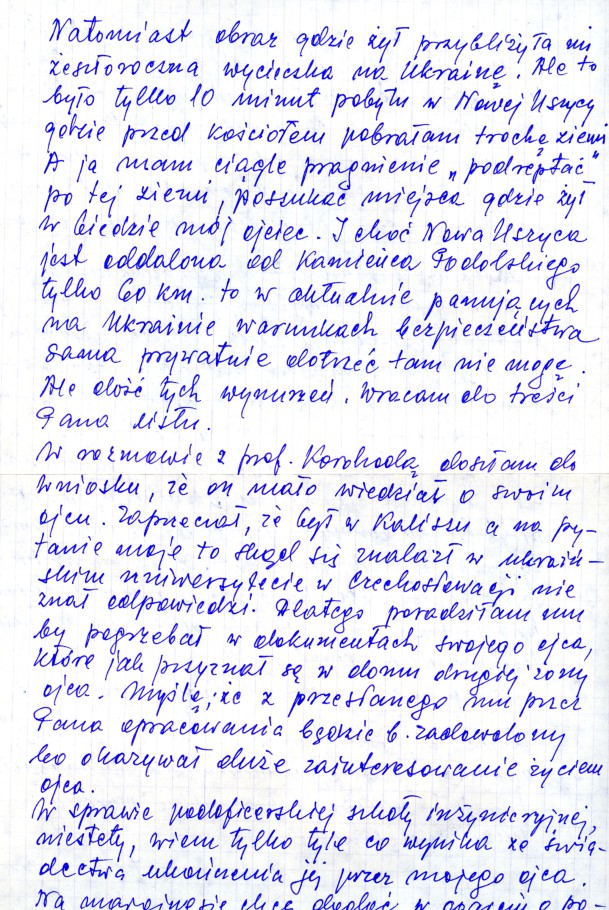 Natomiast obraz gdzie żył przybliżyła mi
zeszłoroczna wycieczka na Ukrainę. Ale to
było tylko 10 minut pobytu w Nowej Uszycy
gdzie przed kościołem pobrałam trochę ziemi
A ja mam ciągle pragnienie „podreptać"
po tej ziemi, poszukać miejsca gdzie żył
w biedzie mój ojciec. I choć Nowa Uszyca
jest oddalona od Kamieńca Podolskiego
tylko 60 km. to w aktualnie panujących
na Ukrainie warunkach bezpieczeństwa
sama prywatnie dotrzeć tam nie mogę.
Ale dość tych wynurzeń. Wracam do treści
Pana listu.
W rozmowie z prof. Korohodą doszłam do
wniosku, że on mało wiedział o swoim
ojcu. Zaprzeczał, że był w Kaliszu a na py-
tanie moje to skąd się znalazł w ukraiń-
skim uniwersytecie w Czechosłowacji nie
znał odpowiedzi. Dlatego poradziłam mu
by pogrzebał w dokumentach swojego ojca,
które jak przyznał są w domu drugiej żony
ojca. Myślę, że z przesłanego mu przez
Pana opracowania będzie b. zadowolony
bo okazywał duże zainteresowanie życiem
ojca.
W sprawie podoficerskiej szkoły inżynieryjnej,
niestety, wiem tylko tyle co wynika ze świa-
dectwa ukończenia jej przez mojego ojca.
Na marginesie chcę dodać w sprawie